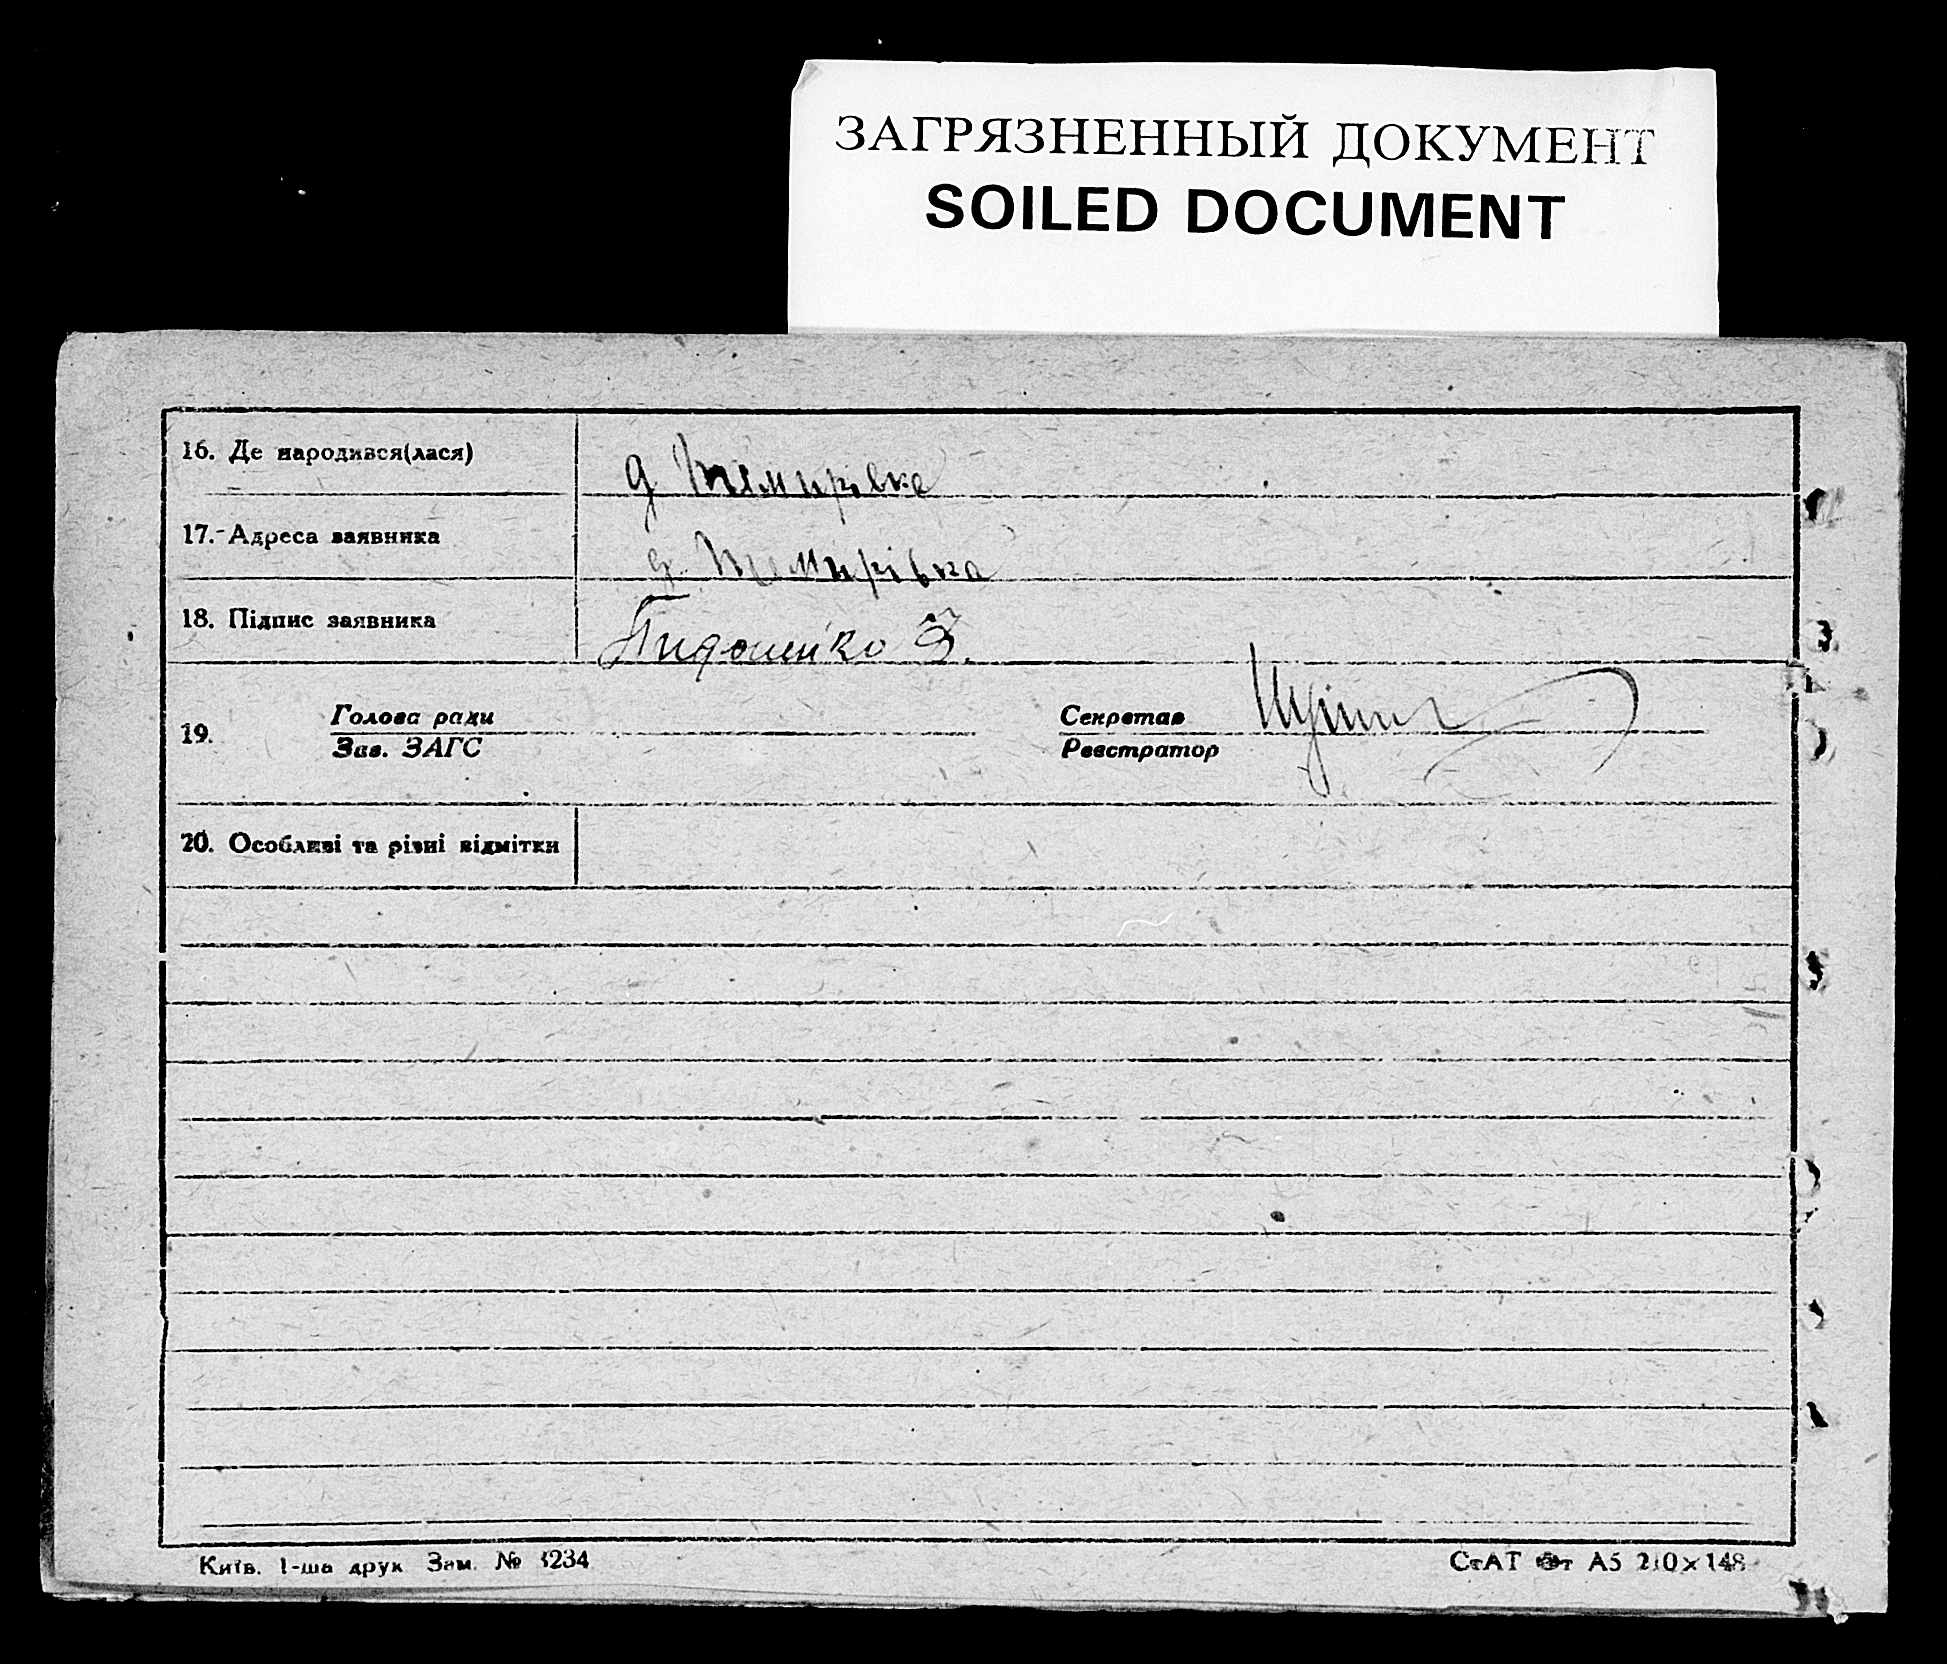 ЗАГРЯЗНЕННЫЙ ДОКУМЕНТ
SOILED DOCUMENT
16. Де народився(лася) д Темирівка
17. Адреса заявника д. Темирівка
18. Підпис заявника
19. Голова ради Секретар
Зав. ЗАГС Реєстратор
20. Особливі та різні відмітки
Київ. 1-ша друк Зам. № 3234
СтАТ А5 210×148